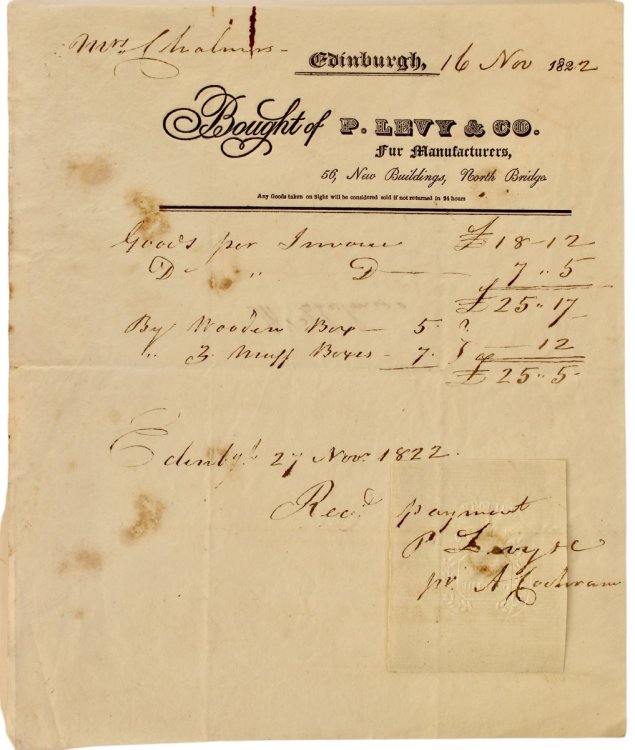 Mrs Chalmers -
Edinburgh, 16 Nov 1822
Bought of P. LEVY & CO.
Fur Manufacturers,
56, New Buildings, North Bridge
Any Goods taken on Sight will be considered sold if not returned in 24 hours
Goods per Invoice £ 18 - 12
Do " Do — 7 " 5
£ 25 " 17
By Wooden Box — 5
" 3 Muff Boxes - 7 — 12
£ 25 " 5 -
Edinbgh 27 Novr 1822.
Recd payment
P Levy & Co
pr A Cochrane